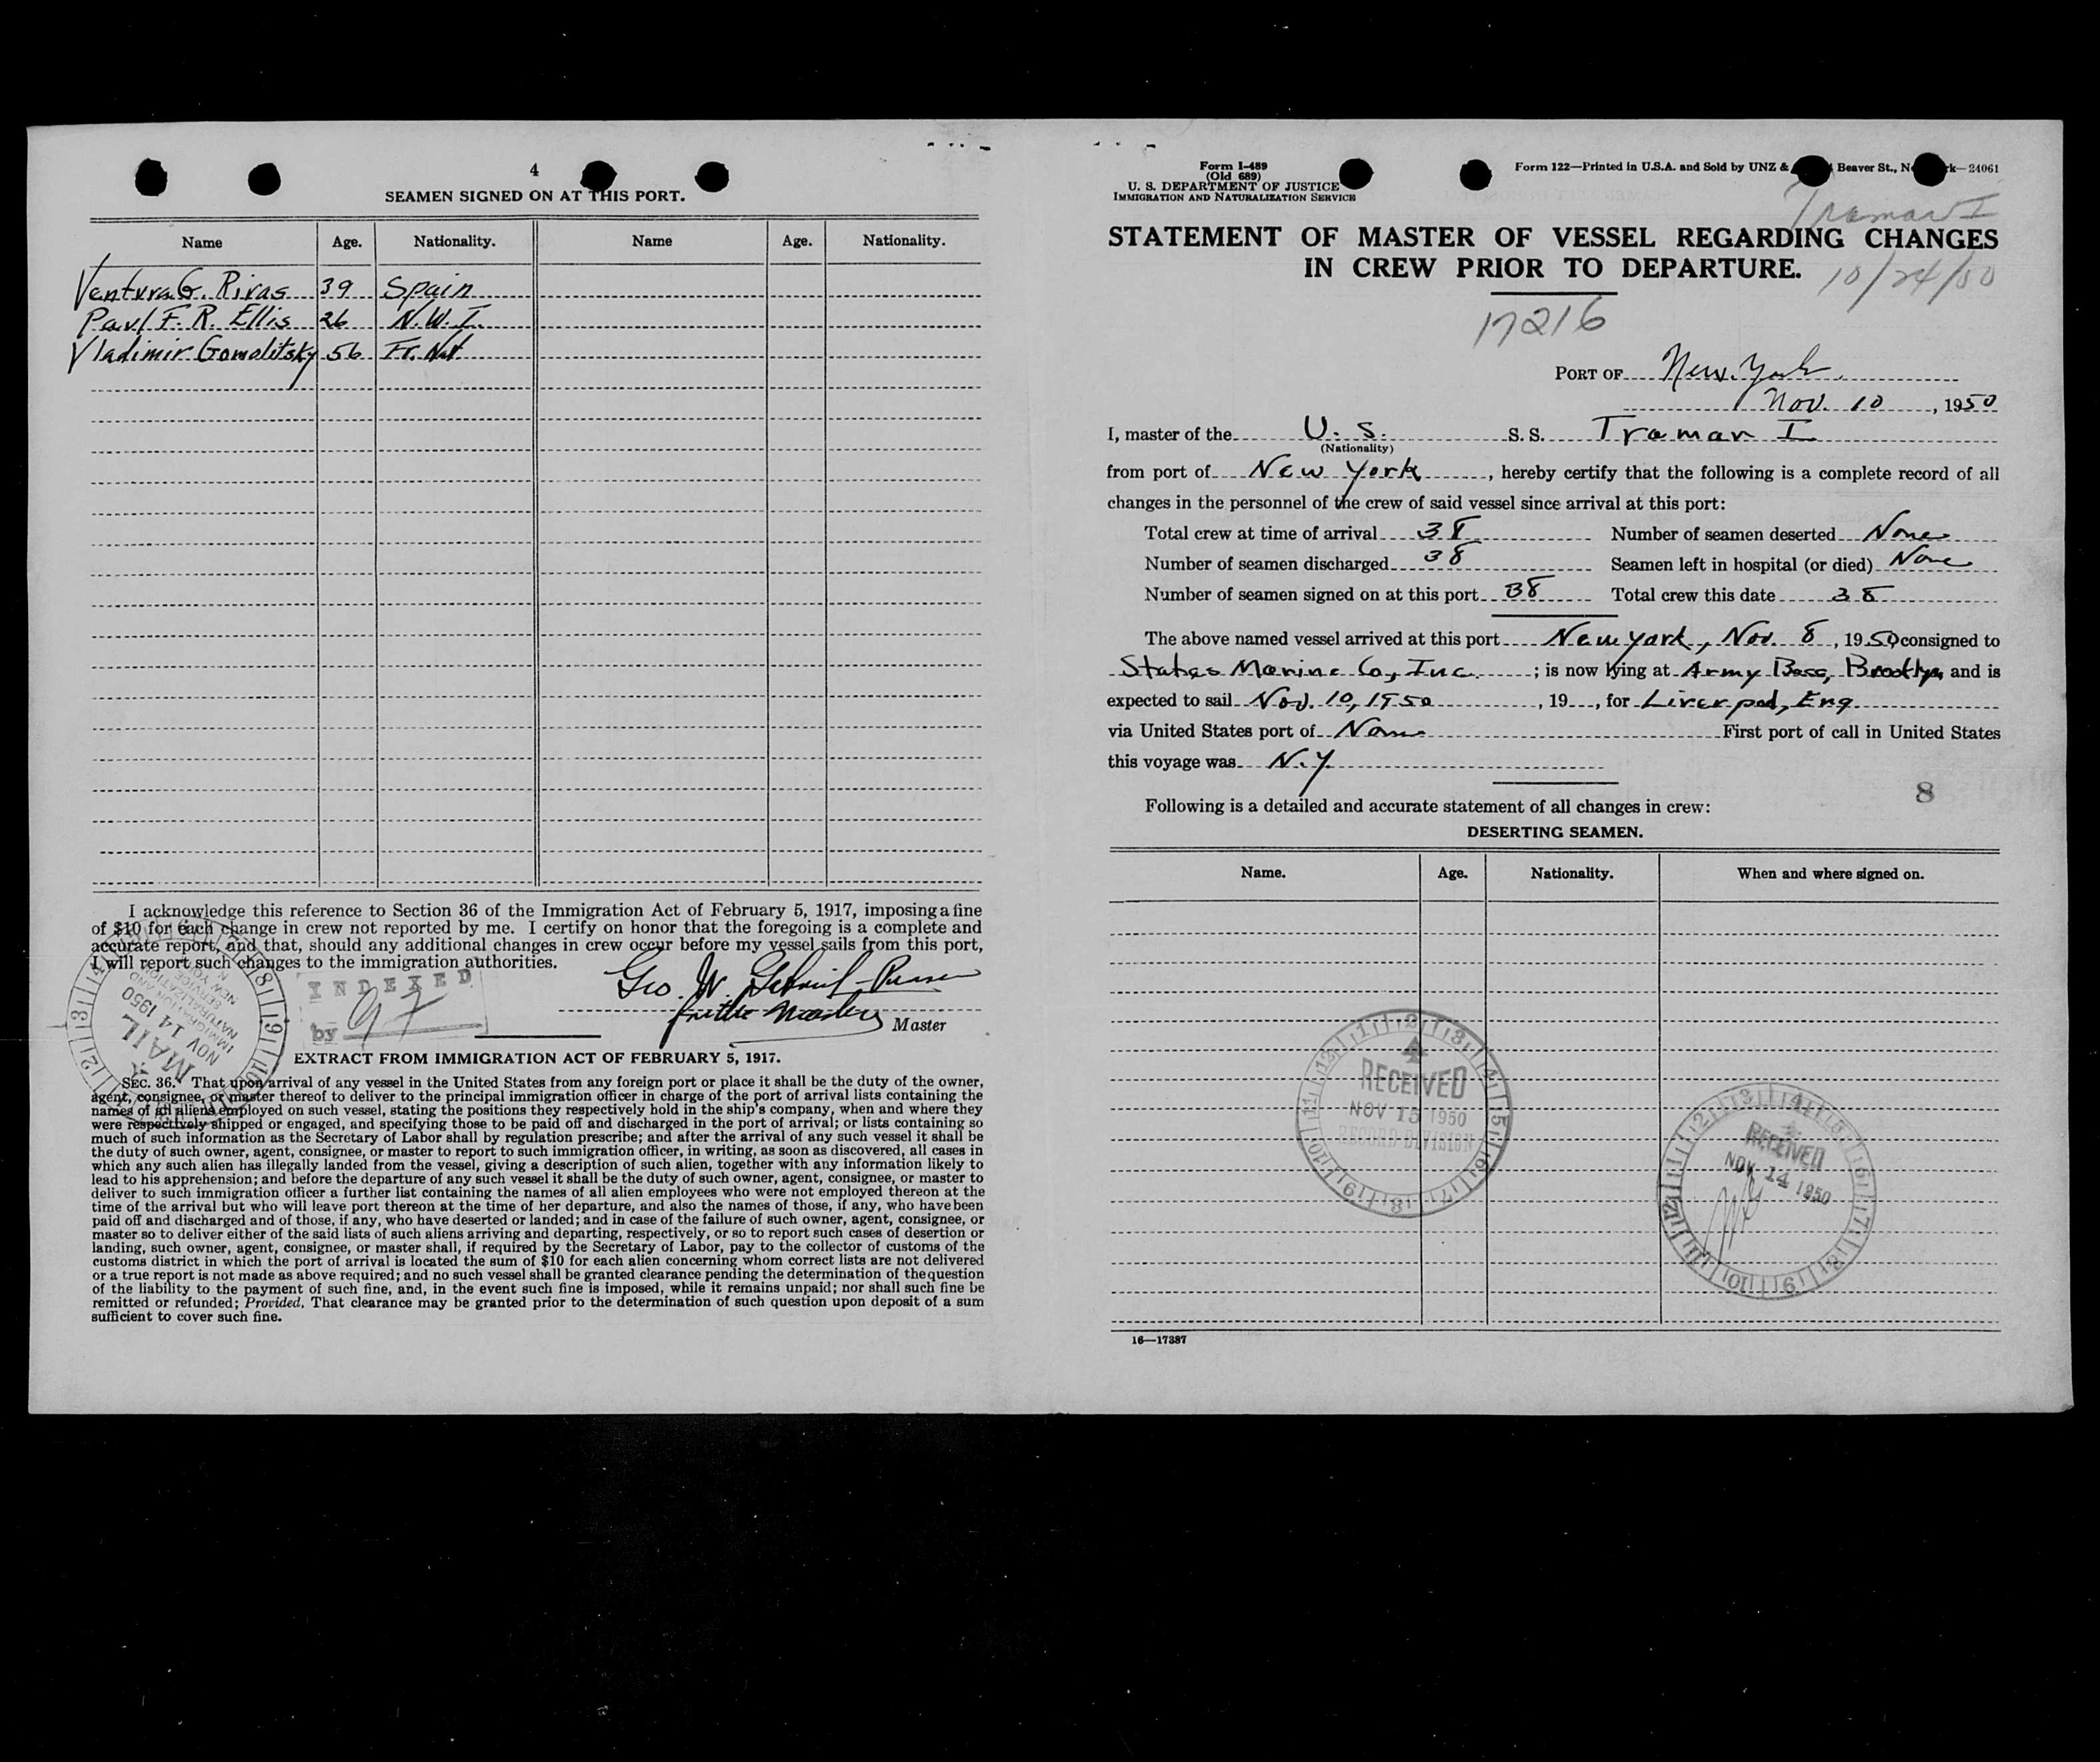 4
SEAMEN SIGNED ON AT THIS PORT.
Name Age. Nationality. Name Age. Nationality.
Ventura G. Rivas 39 Spain
Paul F. R. Ellis 26 N.W.I.
Vladimir Gomolitsky 56 Fr. Nat
I acknowledge this reference to Section 36 of the Immigration Act of February 5, 1917, imposing a fine
of $10 for each change in crew not reported by me. I certify on honor that the foregoing is a complete and
accurate report, and that, should any additional changes in crew occur before my vessel sails from this port,
I will report such changes to the immigration authorities.
INDEXED
by
Geo. W.
for the Master
Master
MAIL
NOV 14 1950
IMMIGRATION AND
NATURALIZATION
SERVICE
NEW YORK
EXTRACT FROM IMMIGRATION ACT OF FEBRUARY 5, 1917.
SEC. 36. That upon arrival of any vessel in the United States from any foreign port or place it shall be the duty of the owner,
agent, consignee, or master thereof to deliver to the principal immigration officer in charge of the port of arrival lists containing the
names of all aliens employed on such vessel, stating the positions they respectively hold in the ship's company, when and where they
were respectively shipped or engaged, and specifying those to be paid off and discharged in the port of arrival; or lists containing so
much of such information as the Secretary of Labor shall by regulation prescribe; and after the arrival of any such vessel it shall be
the duty of such owner, agent, consignee, or master to report to such immigration officer, in writing, as soon as discovered, all cases in
which any such alien has illegally landed from the vessel, giving a description of such alien, together with any information likely to
lead to his apprehension; and before the departure of any such vessel it shall be the duty of such owner, agent, consignee, or master to
deliver to such immigration officer a further list containing the names of all alien employees who were not employed thereon at the
time of the arrival but who will leave port thereon at the time of her departure, and also the names of those, if any, who have been
paid off and discharged and of those, if any, who have deserted or landed; and in case of the failure of such owner, agent, consignee, or
master so to deliver either of the said lists of such aliens arriving and departing, respectively, or so to report such cases of desertion or
landing, such owner, agent, consignee, or master shall, if required by the Secretary of Labor, pay to the collector of customs of the
customs district in which the port of arrival is located the sum of $10 for each alien concerning whom correct lists are not delivered
or a true report is not made as above required; and no such vessel shall be granted clearance pending the determination of the question
of the liability to the payment of such fine, and, in the event such fine is imposed, while it remains unpaid; nor shall such fine be
remitted or refunded; Provided, That clearance may be granted prior to the determination of such question upon deposit of a sum
sufficient to cover such fine.
Form I-489
(Old 689)
U. S. DEPARTMENT OF JUSTICE
IMMIGRATION AND NATURALIZATION SERVICE
Form 122—Printed in U.S.A. and Sold by UNZ & Beaver St., N k—24061
Traman I
STATEMENT OF MASTER OF VESSEL REGARDING CHANGES
IN CREW PRIOR TO DEPARTURE.
10/24/50
17216
PORT OF New York
Nov. 10, 1950
I, master of the U. S. S. S. Traman I
(Nationality)
from port of New York, hereby certify that the following is a complete record of all
changes in the personnel of the crew of said vessel since arrival at this port:
Total crew at time of arrival 38 Number of seamen deserted None
Number of seamen discharged 38 Seamen left in hospital (or died) None
Number of seamen signed on at this port 38 Total crew this date 38
The above named vessel arrived at this port New York, Nov. 8, 1950, consigned to
States Marine Co, Inc.; is now lying at Army Base, Brooklyn and is
expected to sail Nov. 10, 1950, 19 , for Liverpool, Eng.
via United States port of None First port of call in United States
this voyage was N.Y.
8
Following is a detailed and accurate statement of all changes in crew:
DESERTING SEAMEN.
Name. Age. Nationality. When and where signed on.
RECEIVED
NOV 15 1950
RECORD DIVISION
RECEIVED
NOV 14 1950
16—17387